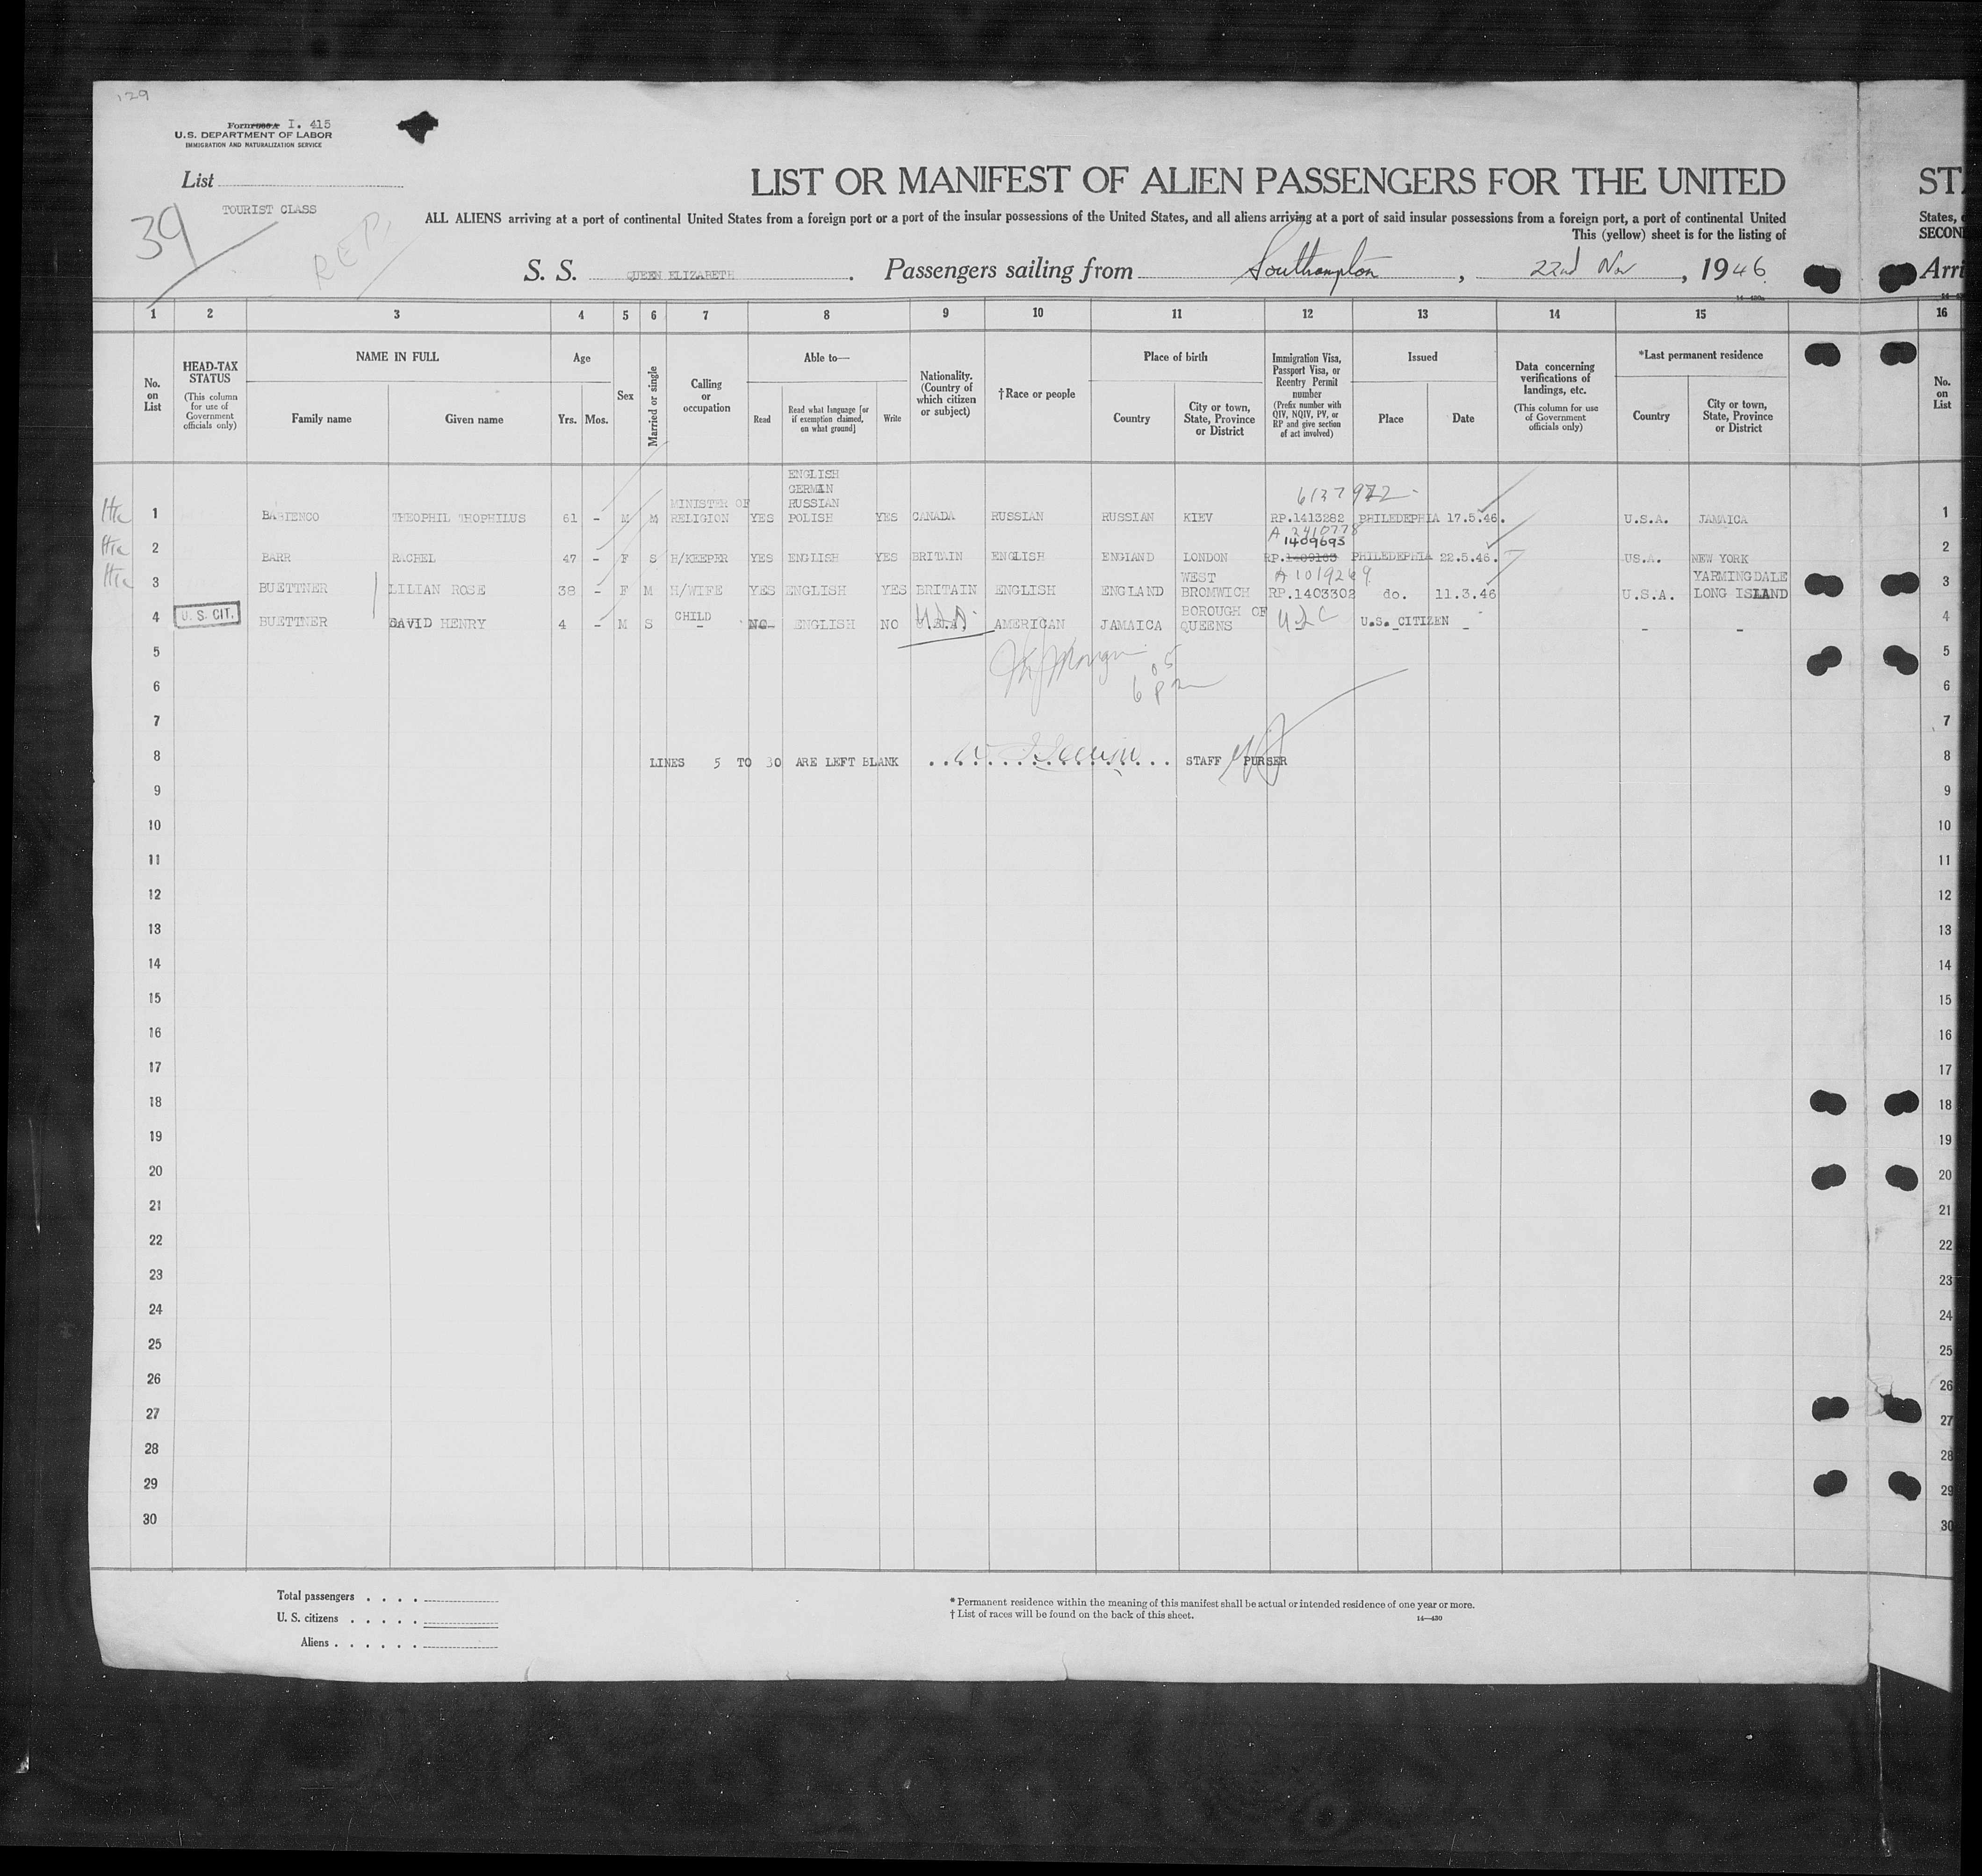 129
Form I. 415
U.S. DEPARTMENT OF LABOR
IMMIGRATION AND NATURALIZATION SERVICE
List
TOURIST CLASS
39
REP.
LIST OR MANIFEST OF ALIEN PASSENGERS FOR THE UNITED
ALL ALIENS arriving at a port of continental United States from a foreign port or a port of the insular possessions of the United States, and all aliens arriving at a port of said insular possessions from a foreign port, a port of continental United
This (yellow) sheet is for the listing of
S. S. QUEEN ELIZABETH. Passengers sailing from Southampton, 22nd Nov, 1946
STA
States,
SECON
Arri
1 2 3 4 5 6 7 8 9 10 11 12 13 14 15 16
No. on List
HEAD-TAX STATUS (This column for use of Government officials only)
NAME IN FULL
Family name
Given name
Age
Yrs. Mos.
Sex
Married or single
Calling or occupation
Able to—
Read
Read what language [or if exemption claimed, on what ground]
Write
Nationality. (Country of which citizen or subject)
†Race or people
Place of birth
Country
City or town, State, Province or District
Immigration Visa, Passport Visa, or Reentry Permit number (Prefix number with QIV, NQIV, PV, or RP and give section of act involved)
Issued
Place
Date
Data concerning verifications of landings, etc. (This column for use of Government officials only)
*Last permanent residence
Country
City or town, State, Province or District
No. on List
1 BABIENCO THEOPHIL THOPHILUS 61 - M M MINISTER OF RELIGION YES ENGLISH GERMAN RUSSIAN POLISH YES CANADA RUSSIAN RUSSIAN KIEV RP.1413282 PHILEDEPHIA 17.5.46. U.S.A. JAMAICA 1
2 BARR RACHEL 47 - F S H/KEEPER YES ENGLISH YES BRITAIN ENGLISH ENGLAND LONDON A 2410778 1409693 RP.1409163 PHILEDEPHIA 22.5.46. US.A. NEW YORK 2
3 BUETTNER LILIAN ROSE 38 - F M H/WIFE YES ENGLISH YES BRITAIN ENGLISH ENGLAND WEST BROMWICH A1019269 RP.1403302 do. 11.3.46 U.S.A. YARMINGDALE LONG ISLAND 3
4 U. S. CIT. BUETTNER DAVID HENRY 4 - M S CHILD - NO ENGLISH NO U.S.A. AMERICAN JAMAICA BOROUGH OF QUEENS USC U.S. CITIZEN - - - 4
5 5
6 6
6 pm
7 7
8 LINES 5 TO 30 ARE LEFT BLANK STAFF PURSER 8
9 9
10 10
11 11
12 12
13 13
14 14
15 15
16 16
17 17
18 18
19 19
20 20
21 21
22 22
23 23
24 24
25 25
26 26
27 27
28 28
29 29
30 30
Total passengers
U. S. citizens
Aliens
* Permanent residence within the meaning of this manifest shall be actual or intended residence of one year or more.
† List of races will be found on the back of this sheet.
14—430